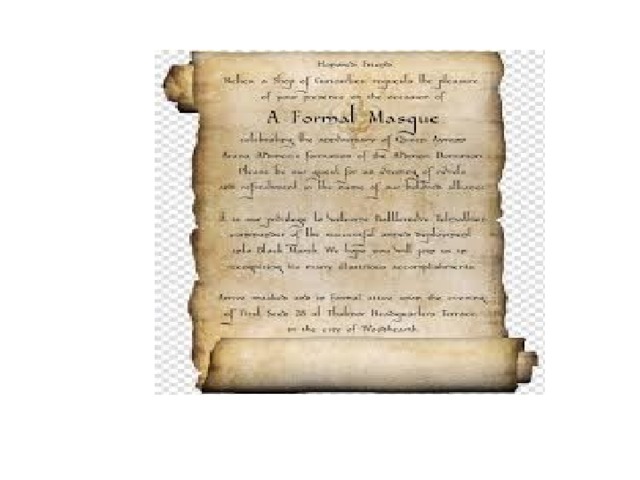 Honored Friends
Relics a Shop of Curiosities requests the pleasure
of your presence on the occasion of
A Formal Masque
celebrating the anniversary of Queen Ayrenn
Arana Aldmeri's formation of the Aldmeri Dominion
Please be our guest for an evening of
and refreshment in the name of our alliance
It is our privilege to welcome Battlereeve
commander of the successful deployment
into Black Marsh. We hope you will join us in
recognizing his many illustrious accomplishments
Arrive masked and in formal attire upon the evening
of First Seed 28 at Thalmor Headquarters Terrace
in the city of Woodhearth